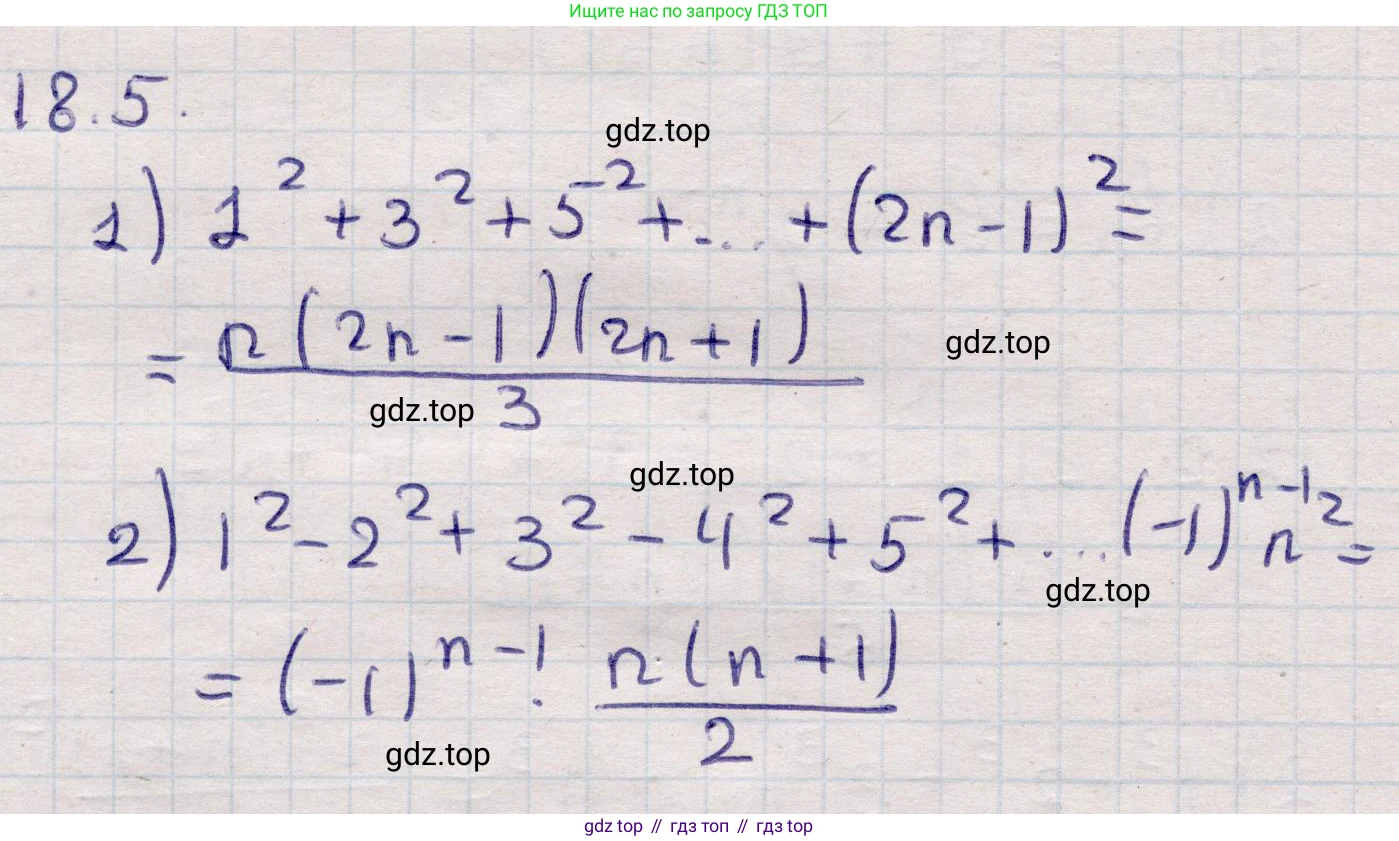 Ищите нас по запросу ГДЗ ТОП
18.5.
gdz.top
1) 1² + 3² + 5² + ... + (2n - 1)² =
= n(2n - 1)(2n + 1) / 3
gdz.top
gdz.top
gdz.top
2) 1² - 2² + 3² - 4² + 5² + ... (-1)ⁿ⁻¹ n² =
gdz.top
= (-1)ⁿ⁻¹ · n(n + 1) / 2
gdz.top
gdz top // гдз топ // gdz top